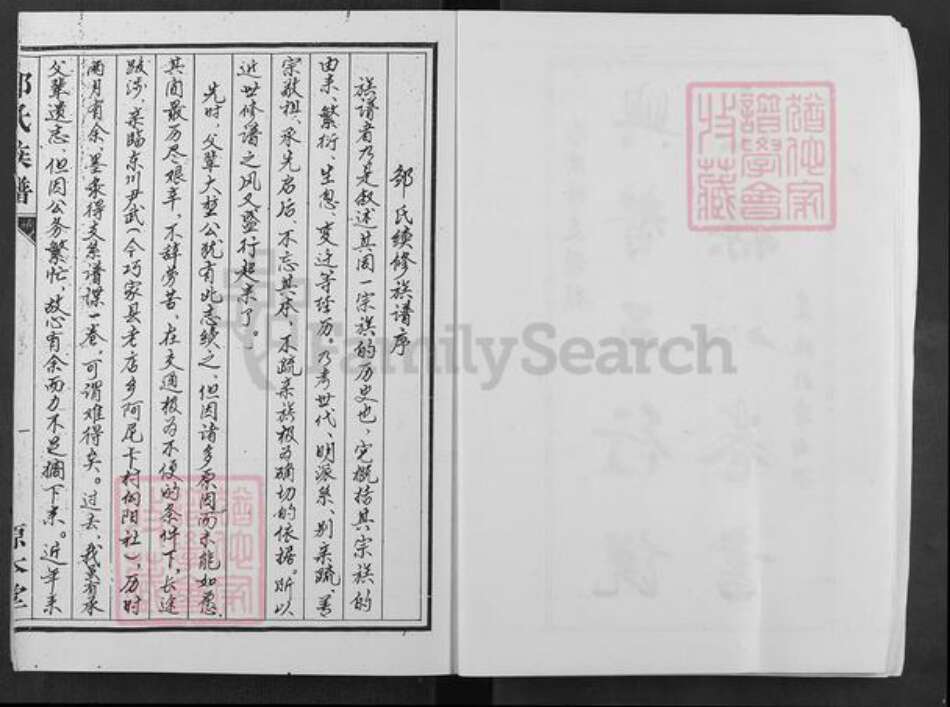 邹氏续修族谱序
族谱者乃是叙述其同一宗族的历史也，它概括其宗族的
由来、繁衍、生息、变迁等经历。乃考世代、明派系、别亲疏、善
宗敬祖、承先启后、不忘其本、不疏亲族极为确切的依据。所以
近世修谱之风又盛行起来了。
先时，父辈大堃公犹有此志续之，但因诸多原因而未能如愿。
其间最历尽艰辛，不辞劳苦，在交通极为不便的条件下，长途
跋涉，亲临东川尹武（今巧家县老店乡阿尼卡村向阳社），历时
两月有余，墨录得支系谱谍一卷，可谓难得矣。过去，我虽有承
父辈遗志，但因公务繁忙，故心有余而力不足搁下来。近年来
氏族谱
一
猶他家
譜學會
收藏
FamilySearch